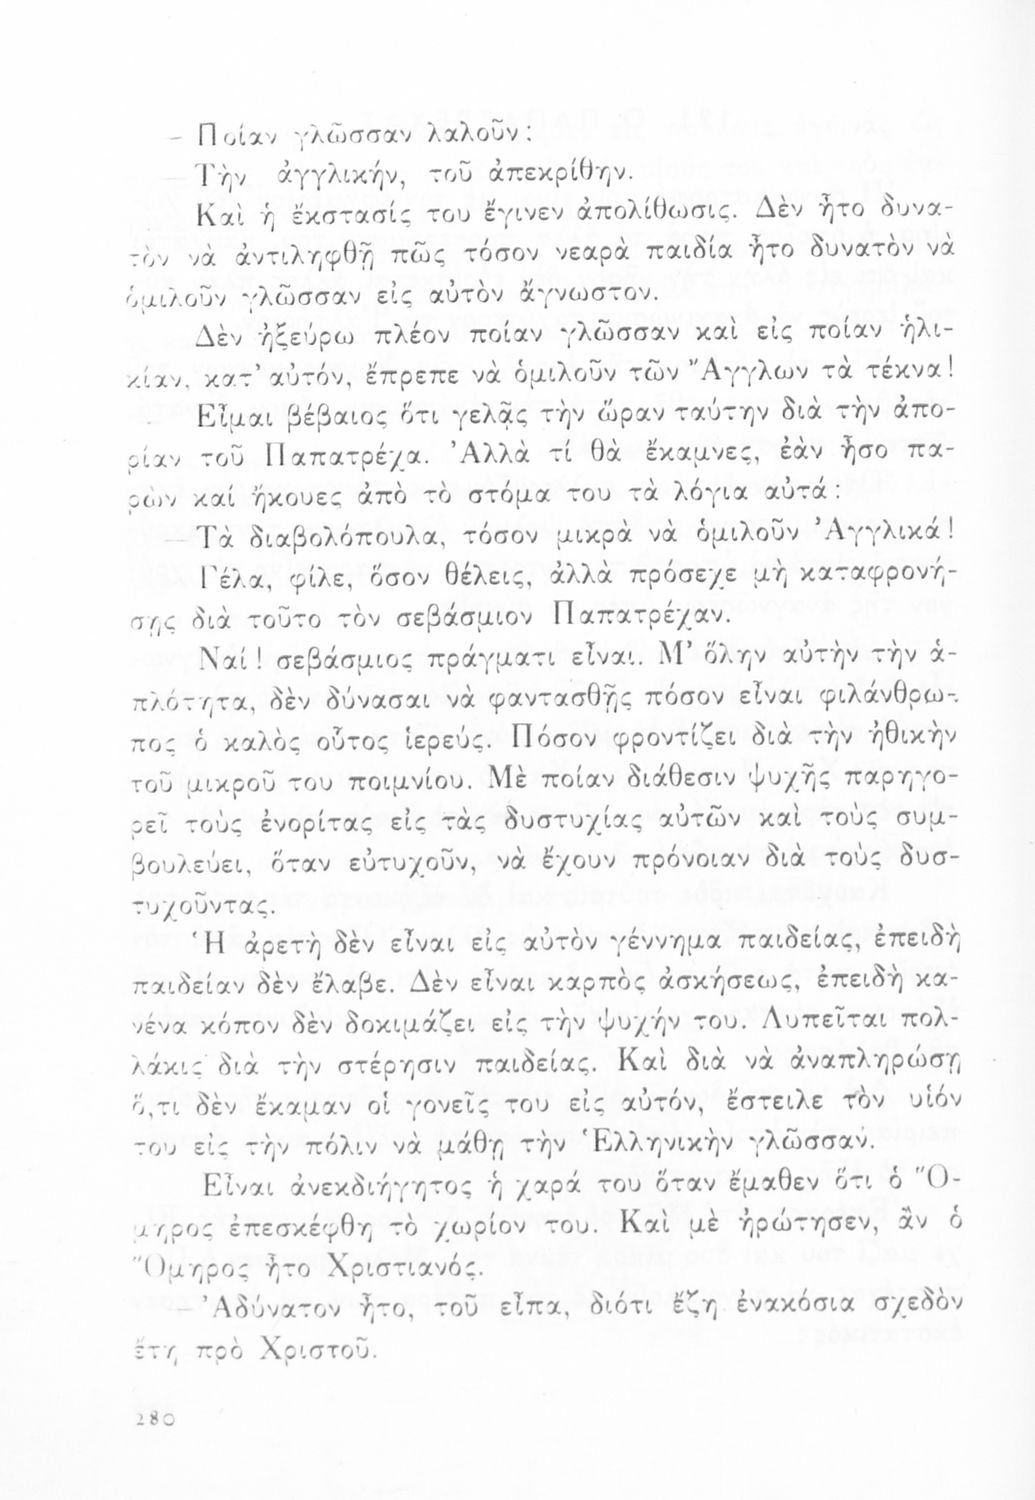 — Ποίαν γλῶσσαν λαλοῦν;
— Τὴν ἀγγλικήν, τοῦ ἀπεκρίθην.
Καὶ ἡ ἔκστασίς του ἔγινεν ἀπολίθωσις. Δὲν ἦτο δυνα-
τὸν νὰ ἀντιληφθῇ πῶς τόσον νεαρὰ παιδία ἦτο δυνατὸν νὰ
ὁμιλοῦν γλῶσσαν εἰς αὐτὸν ἄγνωστον.
Δὲν ἠξεύρω πλέον ποίαν γλῶσσαν καὶ εἰς ποίαν ἡλι-
κίαν, κατ’ αὐτόν, ἔπρεπε νὰ ὁμιλοῦν τῶν Ἄγγλων τὰ τέκνα!
Εἶμαι βέβαιος ὅτι γελᾷς τὴν ὥραν ταύτην διὰ τὴν ἀπο-
ρίαν τοῦ Παπατρέχα. Ἀλλὰ τί θὰ ἔκαμνες, ἐὰν ἦσο πα-
ρὼν καί ἤκουες ἀπὸ τὸ στόμα του τὰ λόγια αὐτά:
— Τὰ διαβολόπουλα, τόσον μικρὰ νὰ ὁμιλοῦν Ἀγγλικά!
Γέλα, φίλε, ὅσον θέλεις, ἀλλὰ πρόσεχε μὴ καταφρονή-
σῃς διὰ τοῦτο τὸν σεβάσμιον Παπατρέχαν.
Ναί! σεβάσμιος πράγματι εἶναι. Μ’ ὅλην αὐτὴν τὴν ἁ-
πλότητα, δὲν δύνασαι νὰ φαντασθῇς πόσον εἶναι φιλάνθρω-
πος ὁ καλὸς οὗτος ἱερεύς. Πόσον φροντίζει διὰ τὴν ἠθικὴν
τοῦ μικροῦ του ποιμνίου. Μὲ ποίαν διάθεσιν ψυχῆς παρηγο-
ρεῖ τοὺς ἐνορίτας εἰς τὰς δυστυχίας αὐτῶν καὶ τοὺς συμ-
βουλεύει, ὅταν εὐτυχοῦν, νὰ ἔχουν πρόνοιαν διὰ τοὺς δυσ-
τυχοῦντας.
Ἡ ἀρετὴ δὲν εἶναι εἰς αὐτὸν γέννημα παιδείας, ἐπειδὴ
παιδείαν δὲν ἔλαβε. Δὲν εἶναι καρπὸς ἀσκήσεως, ἐπειδὴ κα-
νένα κόπον δὲν δοκιμάζει εἰς τὴν ψυχήν του. Λυπεῖται πολ-
λάκις διὰ τὴν στέρησιν παιδείας. Καὶ διὰ νὰ ἀναπληρώσῃ
ὅ,τι δὲν ἔκαμαν οἱ γονεῖς του εἰς αὐτόν, ἔστειλε τὸν υἱόν
του εἰς τὴν πόλιν νὰ μάθῃ τὴν Ἑλληνικὴν γλῶσσαν.
Εἶναι ἀνεκδιήγητος ἡ χαρά του ὅταν ἔμαθεν ὅτι ὁ Ὅ-
μηρος ἐπεσκέφθη τὸ χωρίον του. Καὶ μὲ ἠρώτησεν, ἂν ὁ
Ὅμηρος ἦτο Χριστιανός.
— Ἀδύνατον ἦτο, τοῦ εἶπα, διότι ἔζη ἐνακόσια σχεδὸν
ἔτη πρὸ Χριστοῦ.
280